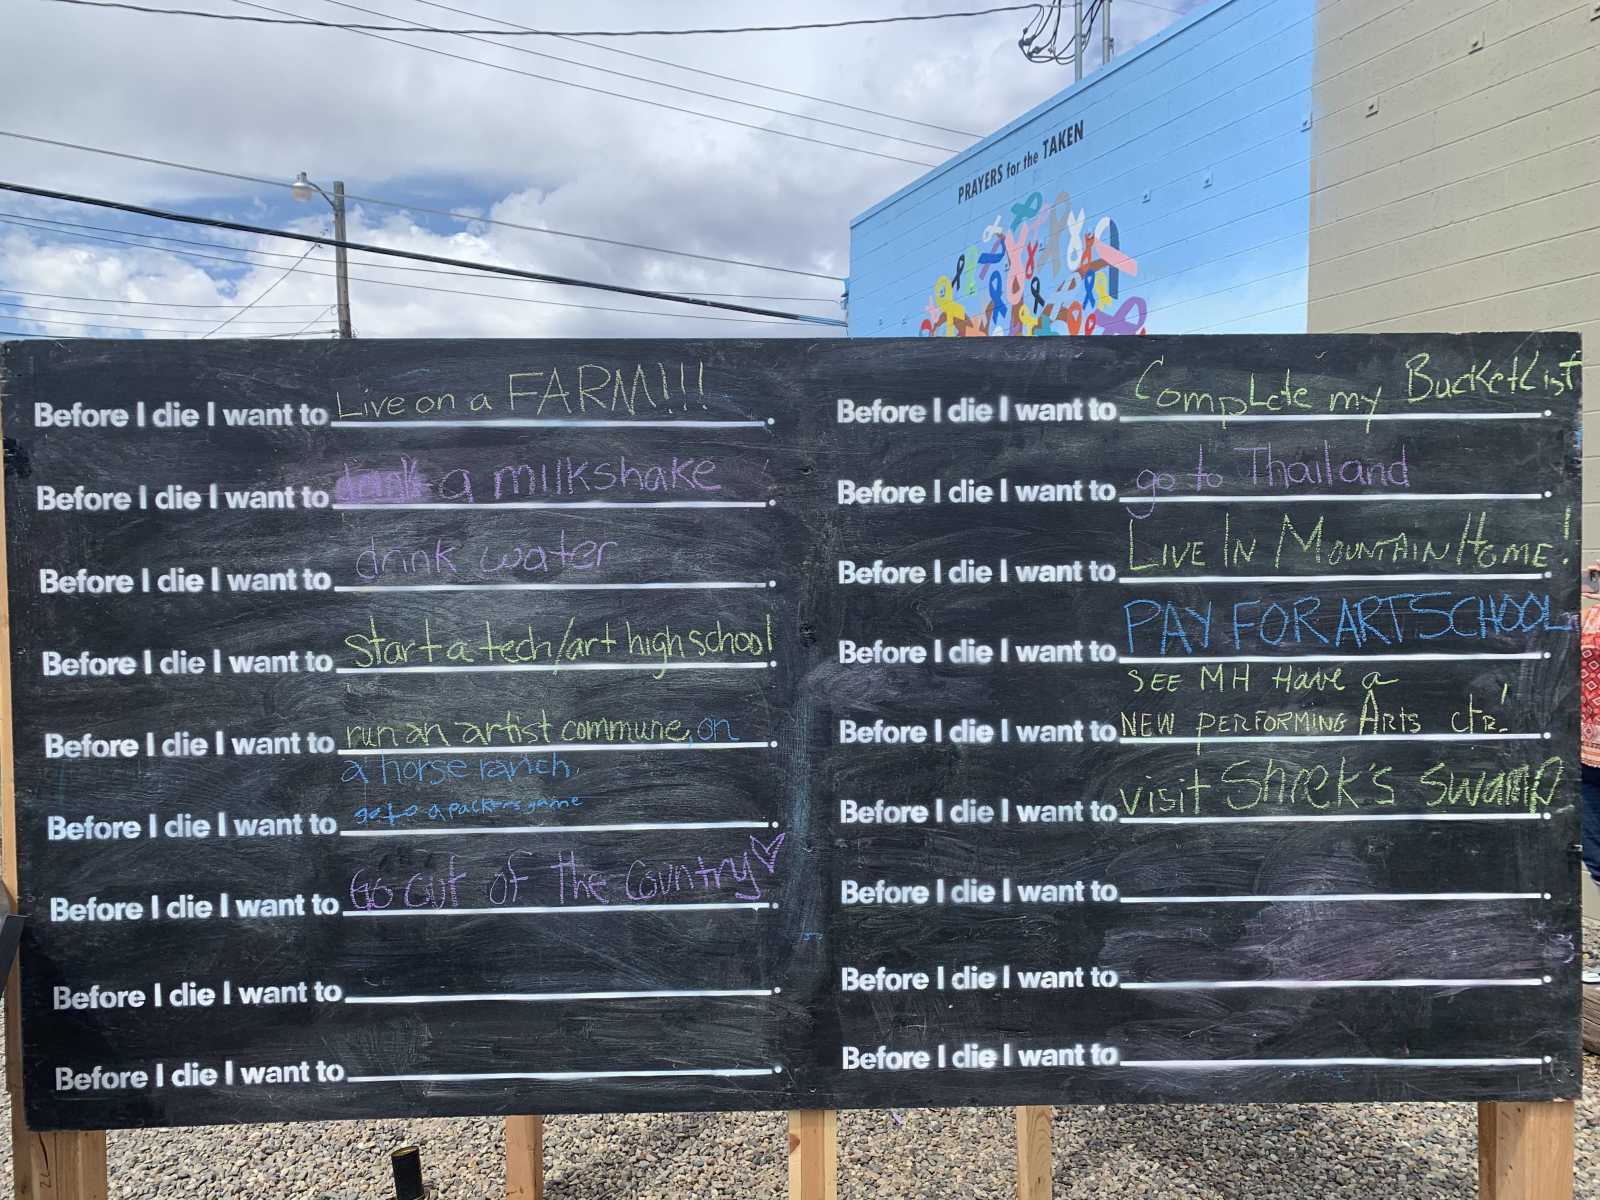 PRAYERS for the TAKEN
Before I die I want to Live on a FARM!!!.
Before I die I want to drink a milkshake.
Before I die I want to drink water.
Before I die I want to start a tech/art high school.
Before I die I want to run an artist commune, on.
a horse ranch.
Before I die I want to go to a packers game.
Before I die I want to Go out of the Country.
Before I die I want to.
Before I die I want to.
Before I die I want to Complete my BucketList.
Before I die I want to go to Thailand.
Before I die I want to LIVE IN MOUNTAIN HOME!.
Before I die I want to PAY FOR ART SCHOOL.
SEE MH Have a
Before I die I want to NEW PERFORMING Arts ctr!.
Before I die I want to visit Shrek's swamp.
Before I die I want to.
Before I die I want to.
Before I die I want to.